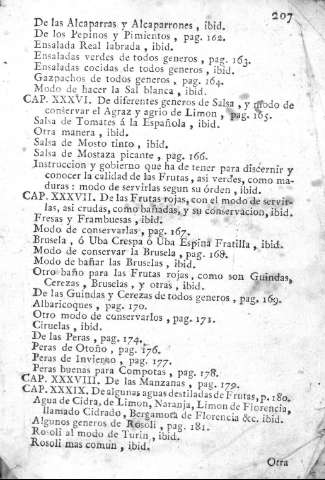 207
De las Alcaparras y Alcaparrones, ibid.
De los Pepinos y Pimientos, pag. 162.
Ensalada Real labrada, ibid.
Ensaladas verdes de todos generos, pag. 163.
Ensaladas cocidas de todos generos, ibid.
Gazpachos de todos generos, pag. 164.
Modo de hacer la Sal blanca, ibid.
CAP. XXXVI. De diferentes generos de Salsa, y modo de
conservar el Agraz y agrio de Limon, pag. 165.
Salsa de Tomates á la Española, ibid.
Otra manera, ibid.
Salsa de Mosto tinto, ibid.
Salsa de Mostaza picante, pag. 166.
Instruccion y gobierno que ha de tener para discernir y
conocer la calidad de las Frutas, asi verdes, como ma-
duras: modo de servirlas segun su órden, ibid.
CAP. XXXVII. De las Frutas rojas, con el modo de servir-
las, asi crudas, como bañadas, y su conservacion, ibid.
Fresas y Frambuesas, ibid.
Modo de conservarlas, pag. 167.
Brusela, ó Uba Crespa ó Uba Espina Fratilla, ibid.
Modo de conservar la Brusela, pag. 168.
Modo de bañar las Bruselas, ibid.
Otro baño para las Frutas rojas, como son Guindas,
Cerezas, Bruselas, y otras, ibid.
De las Guindas y Cerezas de todos generos, pag. 169.
Albaricoques, pag. 170.
Otro modo de conservarlos, pag. 171.
Ciruelas, ibid.
De las Peras, pag. 174.
Peras de Otoño, pag. 176.
Peras de Invierno, pag. 177.
Peras buenas para Compotas, pag. 178.
CAP. XXXVIII. De las Manzanas, pag. 179.
CAP. XXXIX. De algunas aguas destiladas de Frutas, p. 180.
Agua de Cidra, de Limon, Naranja, Limon de Florencia,
llamado Cidrado, Bergamota de Florencia &c. ibid.
Algunos generos de Rosoli, pag. 181.
Rosoli al modo de Turin, ibid.
Rosoli mas comun, ibid.
Otra